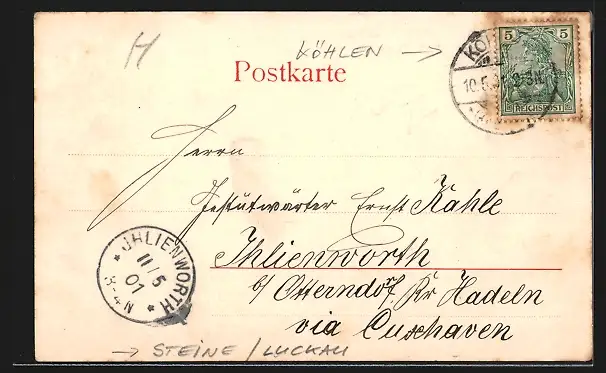 H
KÖHLEN →
Postkarte
KÖH
10.5.01. 8-9N.
5 5
REICHSPOST
Herrn
Gestütwärter Ernst Kahle
Ihlienworth
b/ Otterndorf Kr Hadeln
via Cuxhaven
* JHLIENWORTH *
11/5
01
3-4N
→ STEINE / LUCKAU